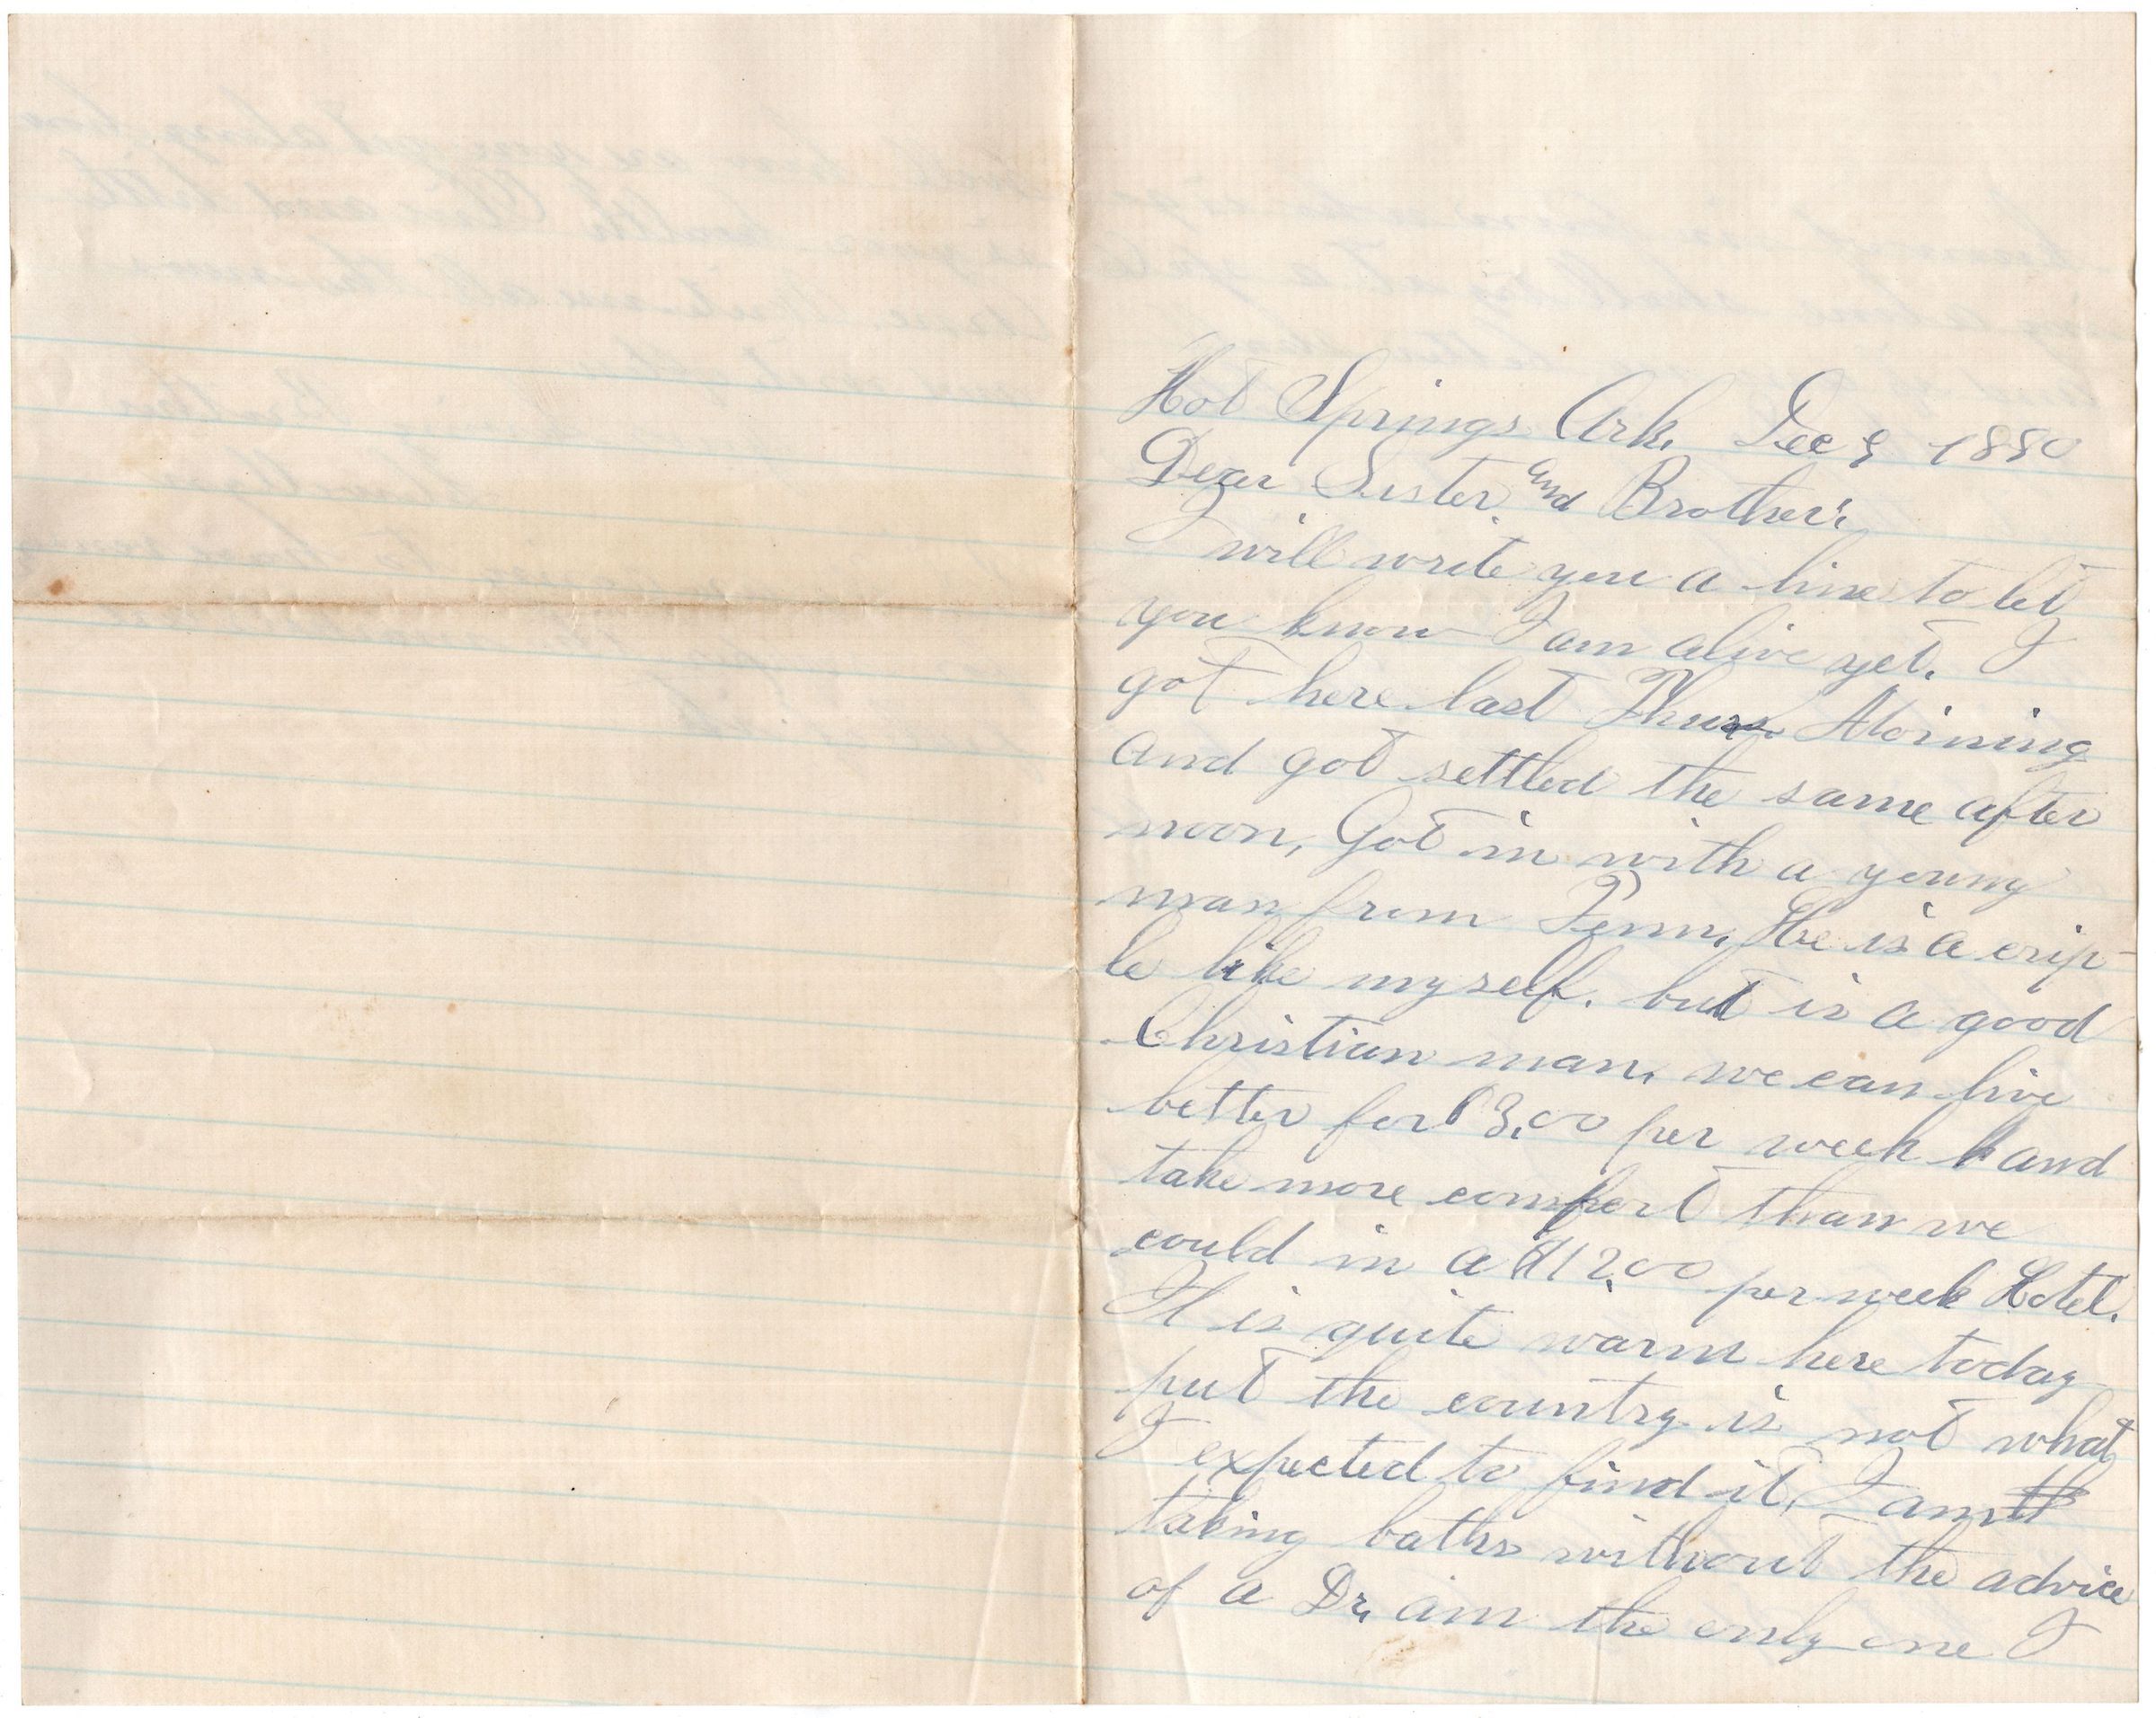 Hot Springs Ark. Dec 9 1880
Dear Sister and Brother,
I will write you a line to let
you know I am alive yet. I
got here last Thurs. Morning
and got settled the same after
noon, Got in with a young
man from Penn, He is a crip-
le like myself. but is a good
Christian man, we can live
better for $3.00 per week and
take more comfort than we
could in a $12.00 per week Hotel.
It is quite warm here today
put the country is not what
I expected to find it, I am
taking baths without the advice
of a Dr, am the only one I